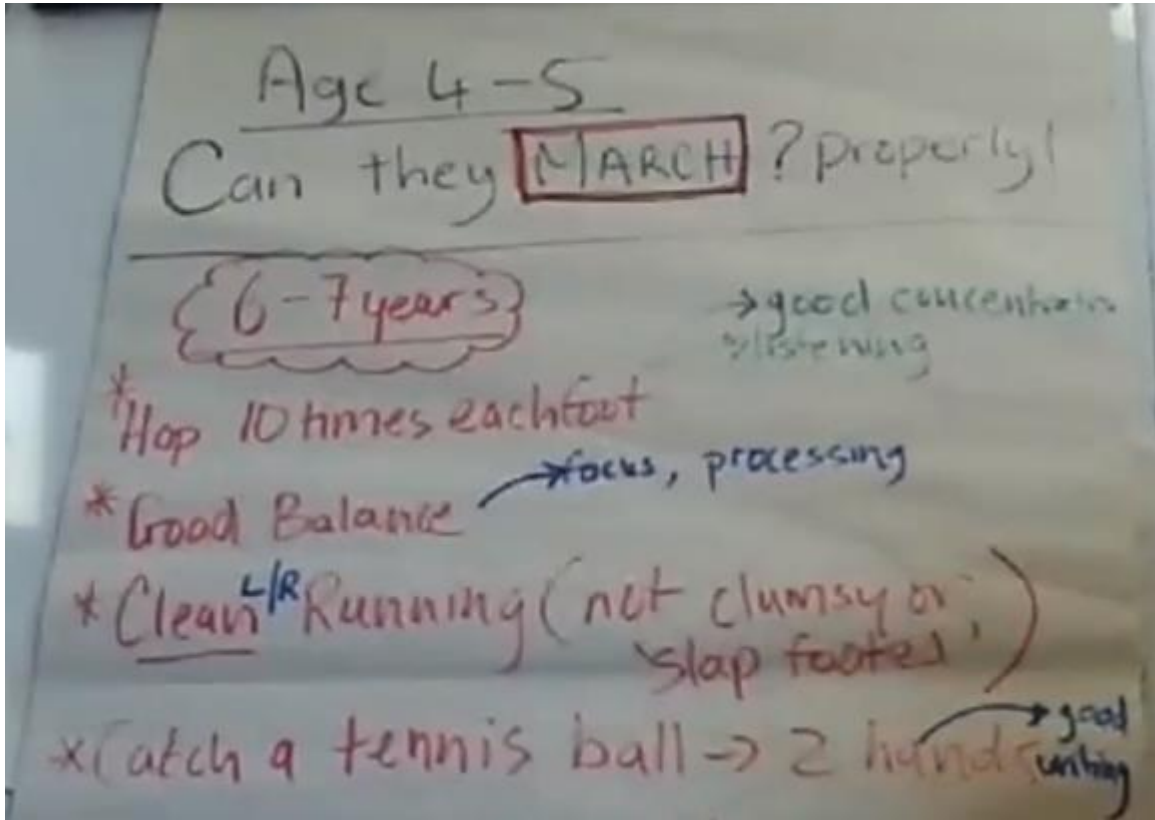 Age 4-5
Can they MARCH ? properly!
6-7 years
→good concentration
→listening
*Hop 10 times each foot
*Good Balance →focus, processing
*Clean L/R Running (not clumsy or
'slap footed')
*Catch a tennis ball → 2 hands →good
writing